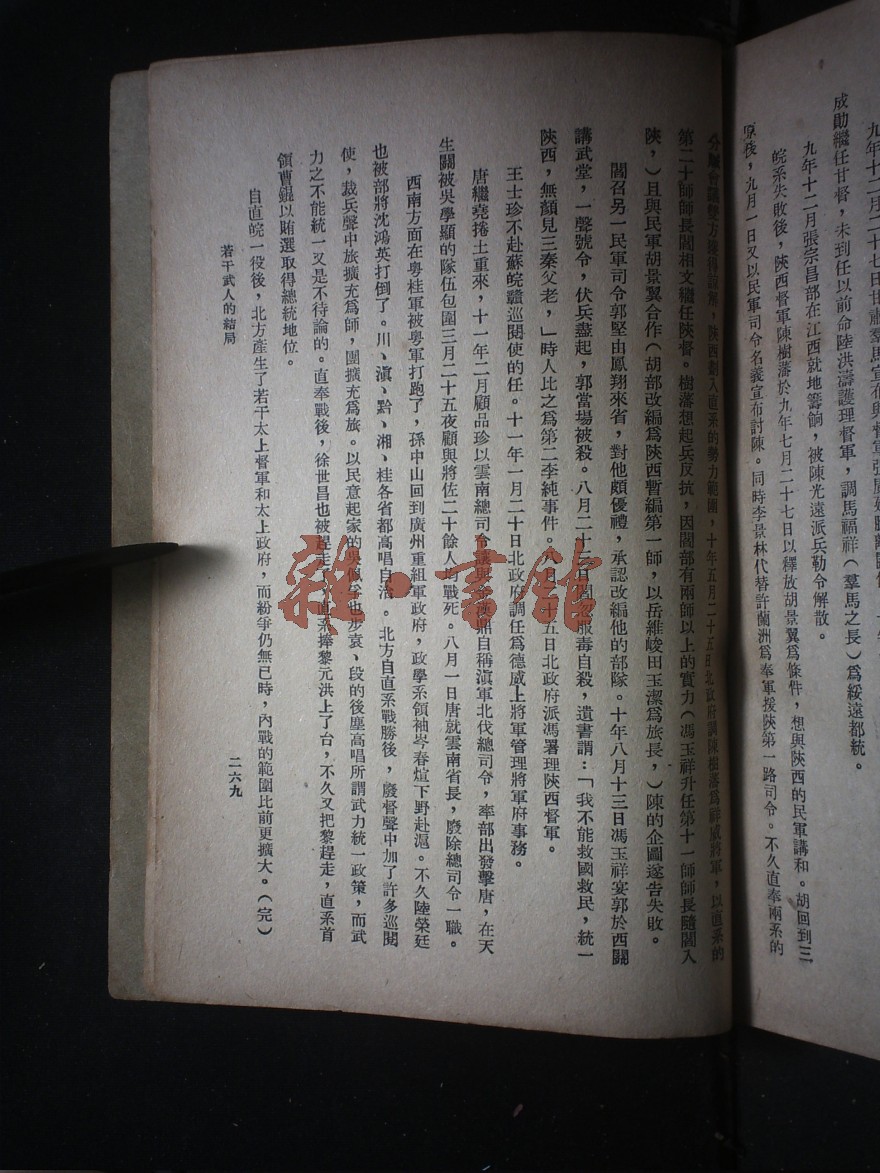 九年十二月二十七日甘肅羣馬宣布與督軍張廣建脫離關係，
成勛繼任甘督，未到任以前命陸洪濤護理督軍，調馬福祥（羣馬之長）爲綏遠都統。
九年十二月張宗昌部在江西就地籌餉，被陳光遠派兵勒令解散。
皖系失敗後，陝西督軍陳樹藩於九年七月二十七日以釋放胡景翼爲條件，想與陝西的民軍講和。胡回到三
原後，九月一日又以民軍司令名義宣布討陳。同時李景林代替許蘭洲爲奉軍援陝第一路司令。不久直奉兩系的
雙方獲得諒解，陝西劃入直系的勢力範圍，十年五月二十五日北政府調陳樹藩爲祥威將軍，以直系的
第二十師師長閻相文繼任陝督。樹藩想起兵反抗，因閻部有兩師以上的實力（馮玉祥升任第十一師師長隨閻入
陝，）且與民軍胡景翼合作（胡部改編爲陝西暫編第一師，以岳維峻田玉潔爲旅長，）陳的企圖遂告失敗。
閻召另一民軍司令郭堅由鳳翔來省，對他頗優禮，承認改編他的部隊。十年八月十三日馮玉祥宴郭於西關
講武堂，一聲號令，伏兵盡起，郭當場被殺。八月二十三日閻忽服毒自殺，遺書謂：「我不能救國救民，統一
陝西，無顏見三秦父老，」時人比之爲第二李純事件。八月二十五日北政府派馮署理陝西督軍。
王士珍不赴蘇皖贛巡閱使的任。十一年一月二十日北政府調任爲德威上將軍管理將軍府事務。
唐繼堯捲土重來，十一年二月顧品珍以雲南總司令讓與金漢鼎自稱滇軍北伐總司令，率部出發擊唐，在天
生關被吳學顯的隊伍包圍三月二十五夜顧與將佐二十餘人均戰死。八月一日唐就雲南省長，廢除總司令一職。
西南方面在粤桂軍被粤軍打跑了，孫中山回到廣州重組軍政府，政學系領袖岑春煊下野赴滬。不久陸榮廷
也被部將沈鴻英打倒了。川、滇、黔、湘、桂各省都高唱自治。北方自直系戰勝後，廢督聲中加了許多巡閱
使，裁兵聲中旅擴充爲師，團擴充爲旅。以民意起家的吳佩孚也步袁、段的後塵高唱所謂武力統一政策，而武
力之不能統一又是不待論的。直奉戰後，徐世昌也被趕走了，直系捧黎元洪上了台，不久又把黎趕走，直系首
領曹錕以賄選取得總統地位。
自直皖一役後，北方產生了若干太上督軍和太上政府，而紛爭仍無已時，內戰的範圍比前更擴大。（完）
若干武人的結局
二六九
雜·書館